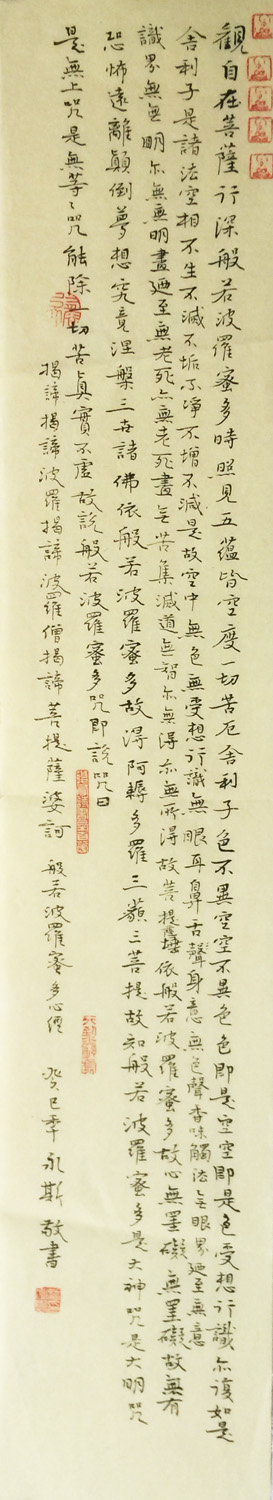 觀自在菩薩行深般若波羅蜜多時照見五蘊皆空度一切苦厄舍利子色不異空空不異色色即是空空即是色受想行識亦復如是
舍利子是諸法空相不生不滅不垢不淨不增不減是故空中無色無受想行識無眼耳鼻舌聲身意無色聲香味觸法无眼界廼至無意
識界無無明亦無無明盡廼至無老死亦無老死盡无苦集滅道無智亦無得亦無所得故菩提薩埵依般若波羅蜜多故心無罣礙無罣礙故無有
恐怖遠離顛倒夢想究竟涅槃三世諸佛依般若波羅蜜多故得阿耨多羅三藐三菩提故知般若波羅蜜多是大神咒是大明咒
是無上咒是無等々咒能除一切苦真實不虛故說般若波羅蜜多咒即說咒曰
揭諦揭諦波羅揭諦波羅僧揭諦菩提薩婆訶 般若波羅蜜多心經 癸巳季永斯敬書